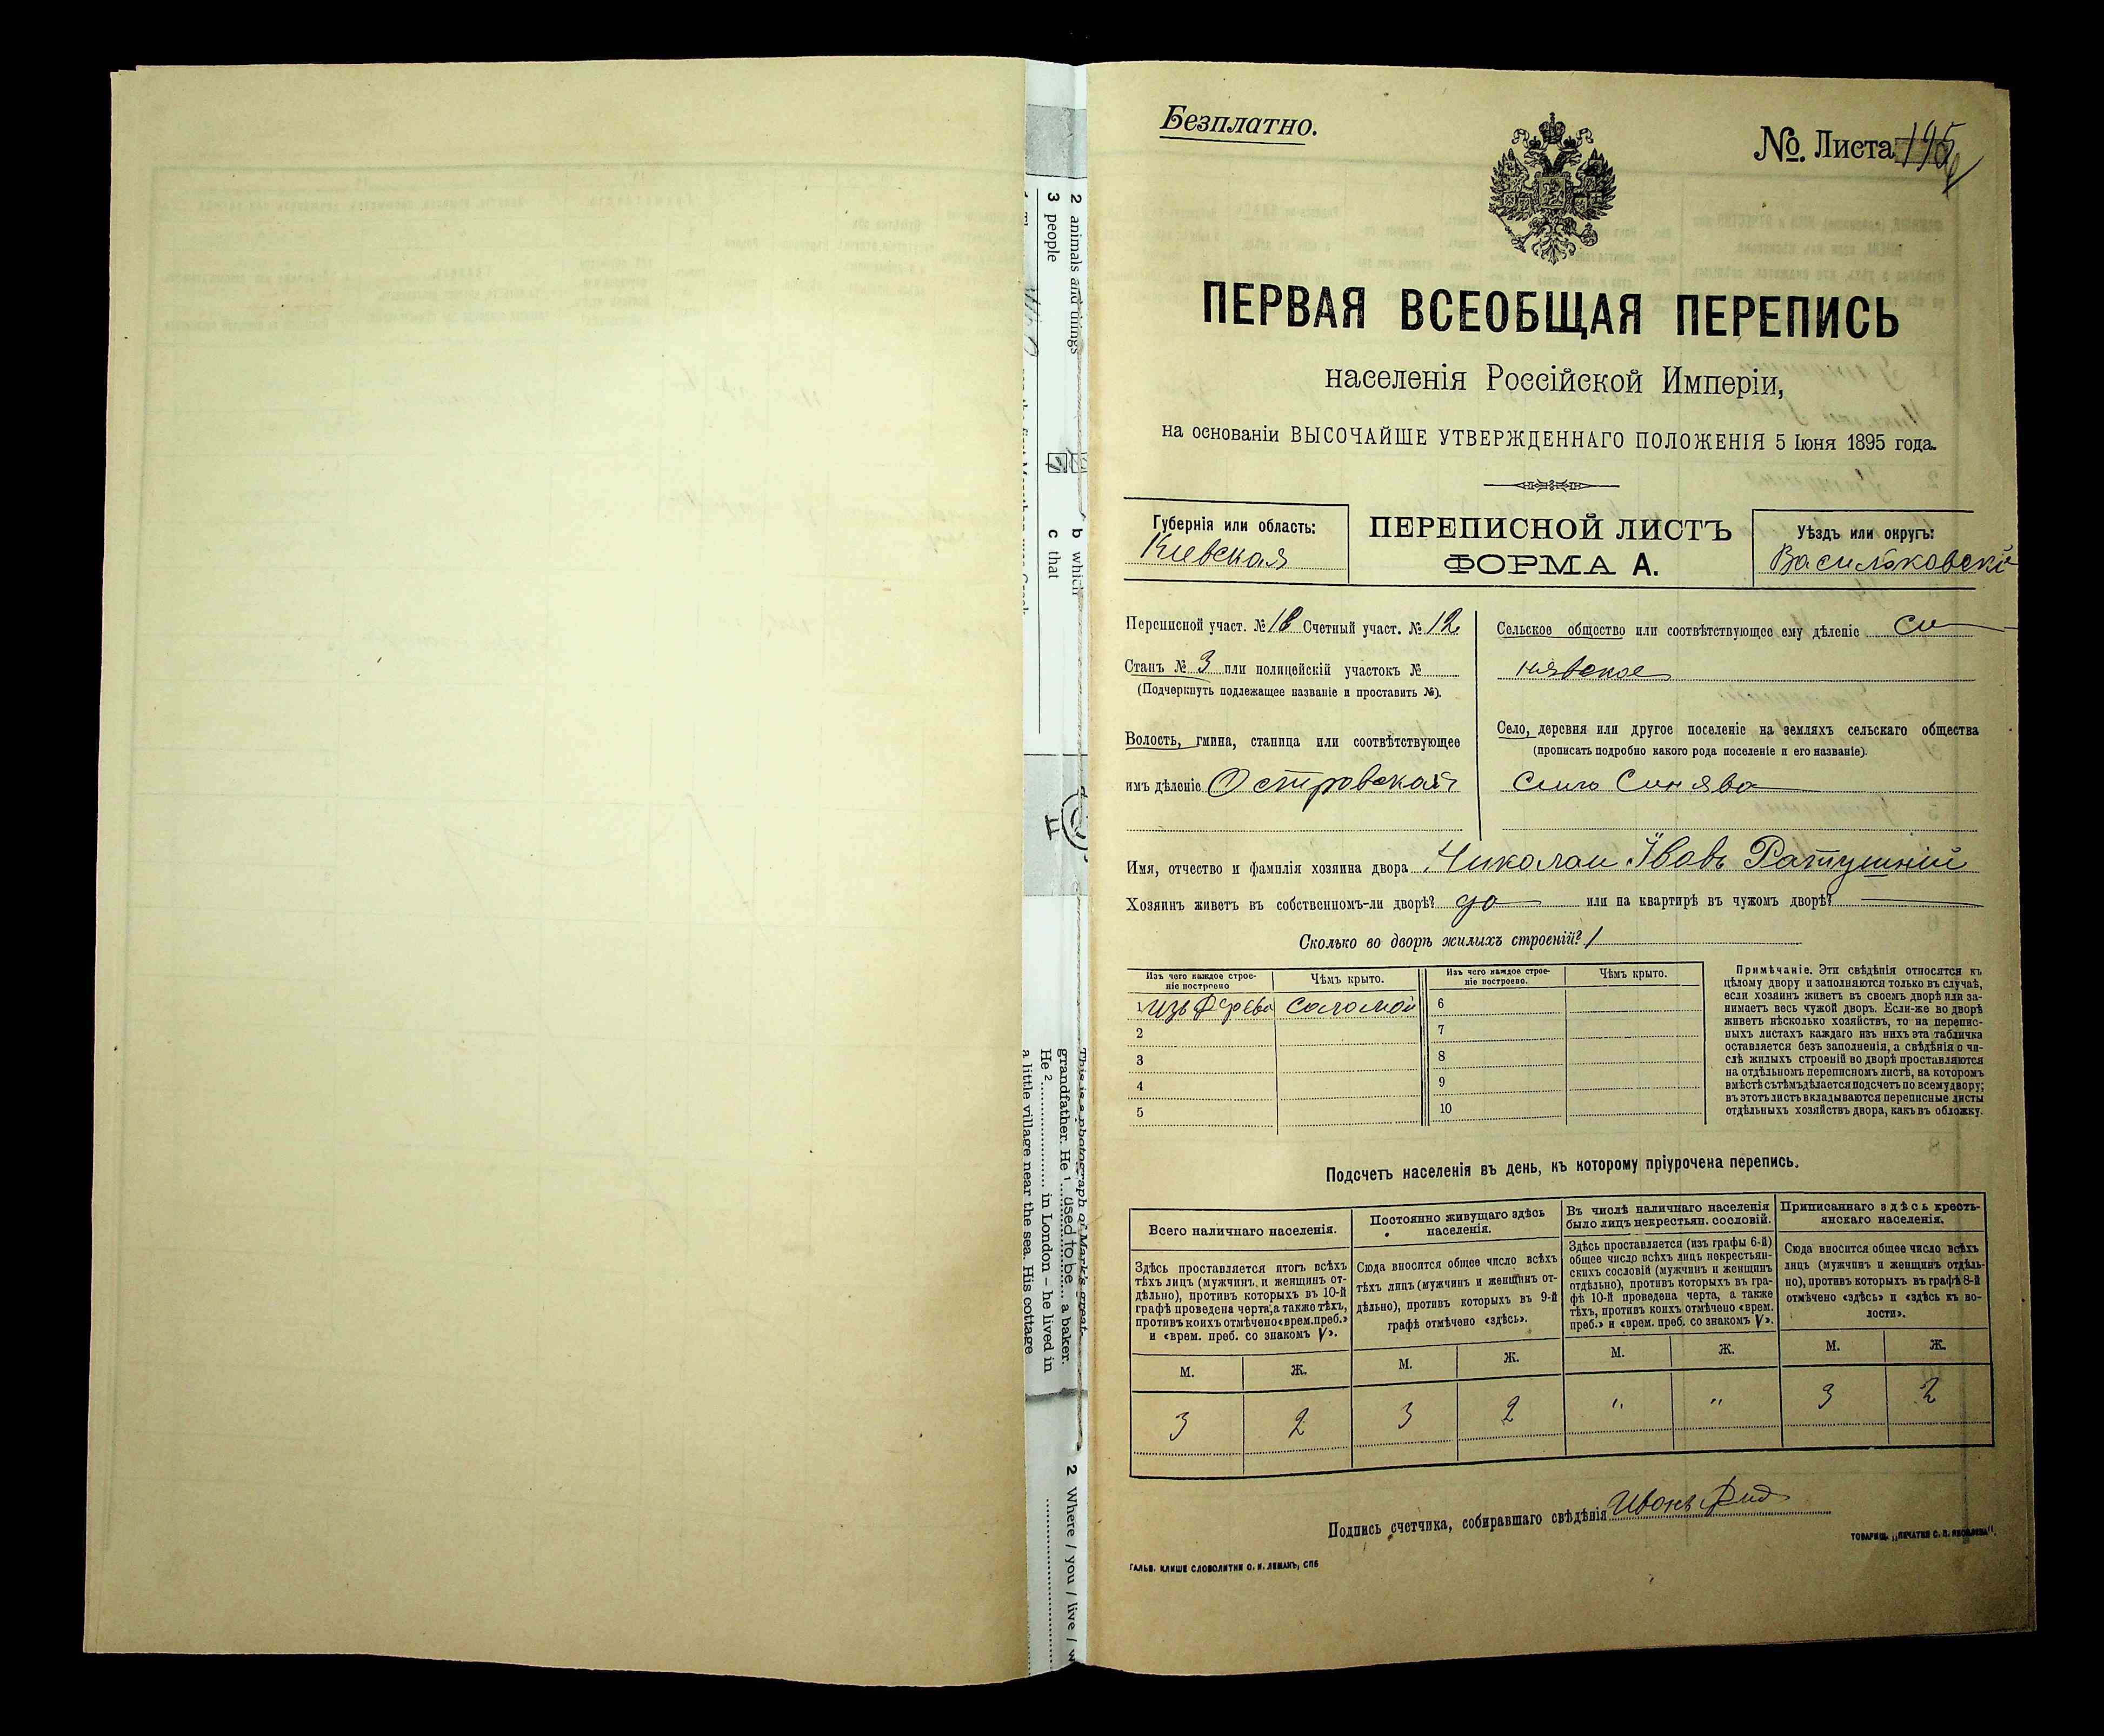 2 animals and things
3 people
b which
c that
This is a photograph of Mark's great-
grandfather. He 1 used to be a baker.
He 2 in London – he lived in
a little village near the sea. His cottage
2 Where / you / live /
Безплатно.
№ Листа 195
ПЕРВАЯ ВСЕОБЩАЯ ПЕРЕПИСЬ
населенія Россійской Имперіи,
на основаніи ВЫСОЧАЙШЕ УТВЕРЖДЕННАГО ПОЛОЖЕНІЯ 5 Іюня 1895 года.
Губернія или область:
Кіевская
ПЕРЕПИСНОЙ ЛИСТЪ
ФОРМА А.
Уѣздъ или округъ:
Васильковскій
Переписной участ. № Счетный участ. № 12
Станъ № 3 или полицейскій участокъ №
(Подчеркнуть подлежащее названіе и проставить №).
Волость, гмина, станица или соотвѣтствующее
имъ дѣленіе Островская
Сельское общество или соотвѣтствующее ему дѣленіе Си
нявское
Село, деревня или другое поселеніе на земляхъ сельскаго общества
(прописать подробно какого рода поселеніе и его названіе).
Село Синява
Имя, отчество и фамилія хозяина двора Николай Івовъ Ратушній
Хозяинъ живетъ въ собственномъ-ли дворѣ? да или на квартирѣ въ чужомъ дворѣ?
Сколько во дворѣ жилыхъ строеній? 1
Изъ чего каждое строе-
ніе построено
Чѣмъ крыто.
Изъ чего каждое строе-
ніе построено.
Чѣмъ крыто.
1 изъ дерева соломой 6
2 7
3 8
4 9
5 10
Примѣчаніе. Эти свѣдѣнія относятся къ
цѣлому двору и заполняются только въ случаѣ,
если хозяинъ живетъ въ своемъ дворѣ или за-
нимаетъ весь чужой дворъ. Если-же во дворѣ
живетъ нѣсколько хозяйствъ, то на перепис-
ныхъ листахъ каждаго изъ нихъ эта табличка
оставляется безъ заполненія, а свѣдѣнія о чи-
слѣ жилыхъ строеній во дворѣ проставляются
на отдѣльномъ переписномъ листѣ, на которомъ
вмѣстѣ съ тѣмъ дѣлается подсчетъ по всему двору;
въ этотъ листъ вкладываются переписные листы
отдѣльныхъ хозяйствъ двора, какъ въ обложку.
Подсчетъ населенія въ день, къ которому пріурочена перепись.
Всего наличнаго населенія.
Здѣсь проставляется итогъ всѣхъ
тѣхъ лицъ (мужчинъ и женщинъ от-
дѣльно), противъ которыхъ въ 10-й
графѣ проведена черта, а также тѣхъ,
противъ коихъ отмѣчено «врем. преб.»
и «врем. преб. со знакомъ V».
Постоянно живущаго здѣсь
населенія.
Сюда вносится общее число всѣхъ
тѣхъ лицъ (мужчинъ и женщинъ от-
дѣльно), противъ которыхъ въ 9-й
графѣ отмѣчено «здѣсь».
Въ числѣ наличнаго населенія
было лицъ некрестьян. сословій.
Здѣсь проставляется (изъ графы 6-й)
общее число всѣхъ лицъ некрестьян-
скихъ сословій (мужчинъ и женщинъ
отдѣльно), противъ которыхъ въ гра-
фѣ 10-й проведена черта, а также
тѣхъ, противъ коихъ отмѣчено «врем.
преб.» и «врем. преб. со знакомъ V».
Приписаннаго здѣсь кресть-
янскаго населенія.
Сюда вносится общее число всѣхъ
лицъ (мужчинъ и женщинъ отдѣль-
но), противъ которыхъ въ графѣ 8-й
отмѣчено «здѣсь» и «здѣсь къ во-
лости».
М. Ж. М. Ж. М. Ж. М. Ж.
3 2 3 2 " " 3 2
Подпись счетчика, собиравшаго свѣдѣнія Иванъ
ГАЛЬВ. КЛИШЕ СЛОВОЛИТНИ О. И. ЛЕМАНЪ, СПБ
ТОВАРИЩ. „ПЕЧАТНЯ С. П. ЯКОВЛЕВА".